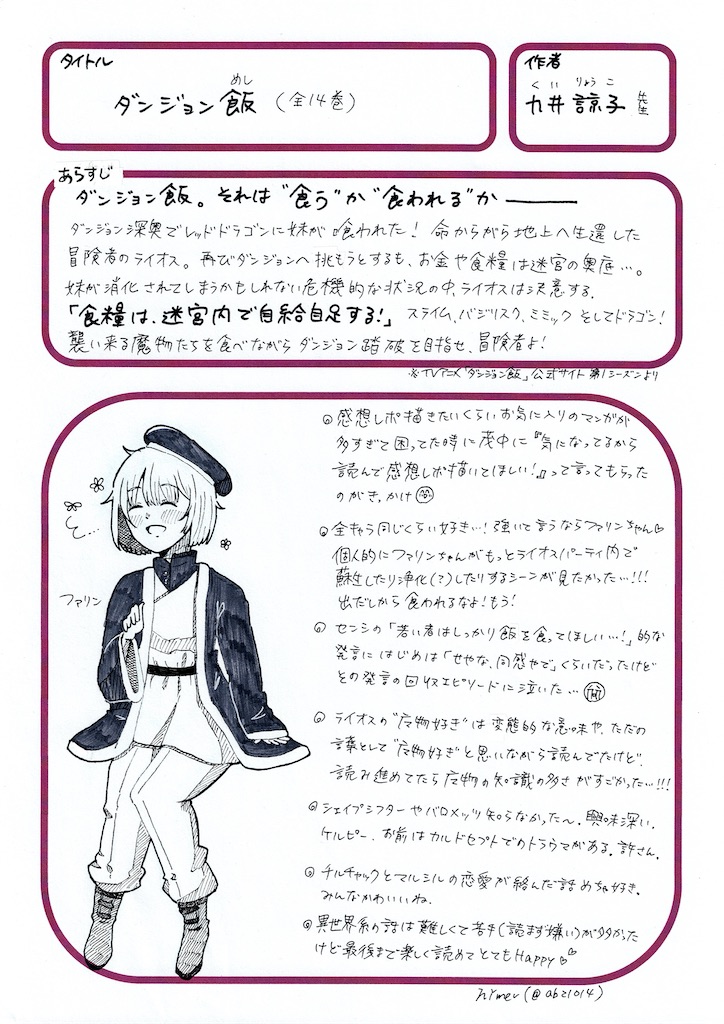 タイトル
ダンジョン飯(全14巻)
めし
作者
くいりょうこ
九井諒子先生
あらすじ
ダンジョン飯。それは“食う”か“食われる”か―――
ダンジョン深奥でレッドドラゴンに妹が喰われた！命からがら地上へ生還した
冒険者のライオス。再びダンジョンへ挑もうとするも、お金や食糧は迷宮の奥底…。
妹が消化されてしまうかもしれない危機的な状況の中、ライオスは決意する。
「食糧は、迷宮内で自給自足する！」スライム、バジリスク、ミミック そしてドラゴン！
襲い来る魔物たちを食べながらダンジョン踏破を目指せ、冒険者よ！
※TVアニメ「ダンジョン飯」公式サイト 第1シーズンより
ファリン
◎感想レポ描きたいくらいお気に入りのマンガが
多すぎて困ってた時に茂中に『気になってるから
読んで感想レポ描いてほしい！』って言ってもらった
のがきっかけ
◎全キャラ同じくらい好き…！強いて言うならファリンちゃん♡
個人的にファリンちゃんがもっとライオスパーティ内で
蘇生したり浄化(？)したりするシーンが見たかった…！！！
出だしから食われるなよ！もう！
◎センシの「若い者はしっかり飯を食ってほしい…！」的な
発言にはじめは「せやな、同感やで」くらいだったけど
その発言の回収エピソードに泣いた…
◎ライオスの“魔物好き”は変態的な意味や、ただの
設定として“魔物好き”と思いながら読んでたけど、
読み進めてたら魔物の知識の多さがすごかった…！！！
◎シェイプシフターやバロメッツ知らなかった〜。興味深い。
ケルピー、お前はカルドセプトでのトラウマがある。許さん。
◎チルチャックとマルシルの恋愛が絡んだ話めちゃ好き。
みんなかわいいね。
◎異世界系の話は難しくて苦手(読まず嫌い)が多かった
けど最後まで楽しく読めてとてもHappy♡♡
(@abz1014)